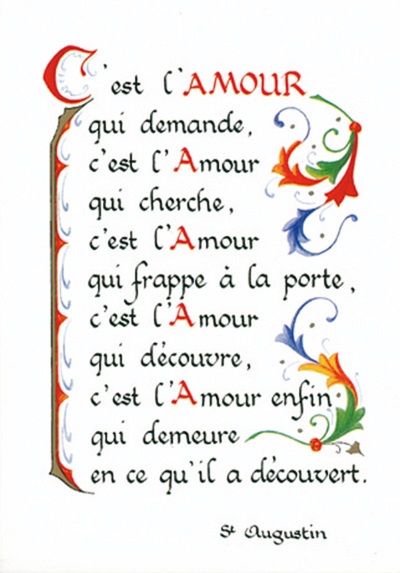 C'est l'AMOUR
qui demande,
c'est l'Amour
qui cherche,
c'est l'Amour
qui frappe à la porte,
c'est l'Amour
qui découvre,
c'est l'Amour enfin
qui demeure
en ce qu'il a découvert.
St Augustin